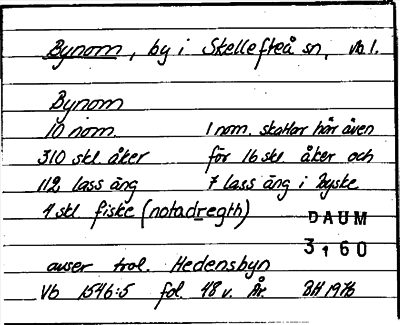 Bynom, by i Skellefteå sn, Vb l.
Bynom
10 nom. 1 nom. skattar här även
310 skl åker för 16 skl. åker och
112 lass äng 7 lass äng i Byske
4 skl fiske (notadregth)
DAUM
3160
avser trol. Hedensbyn
Vb 1546:5 fol. 48 v. År. BH 1976